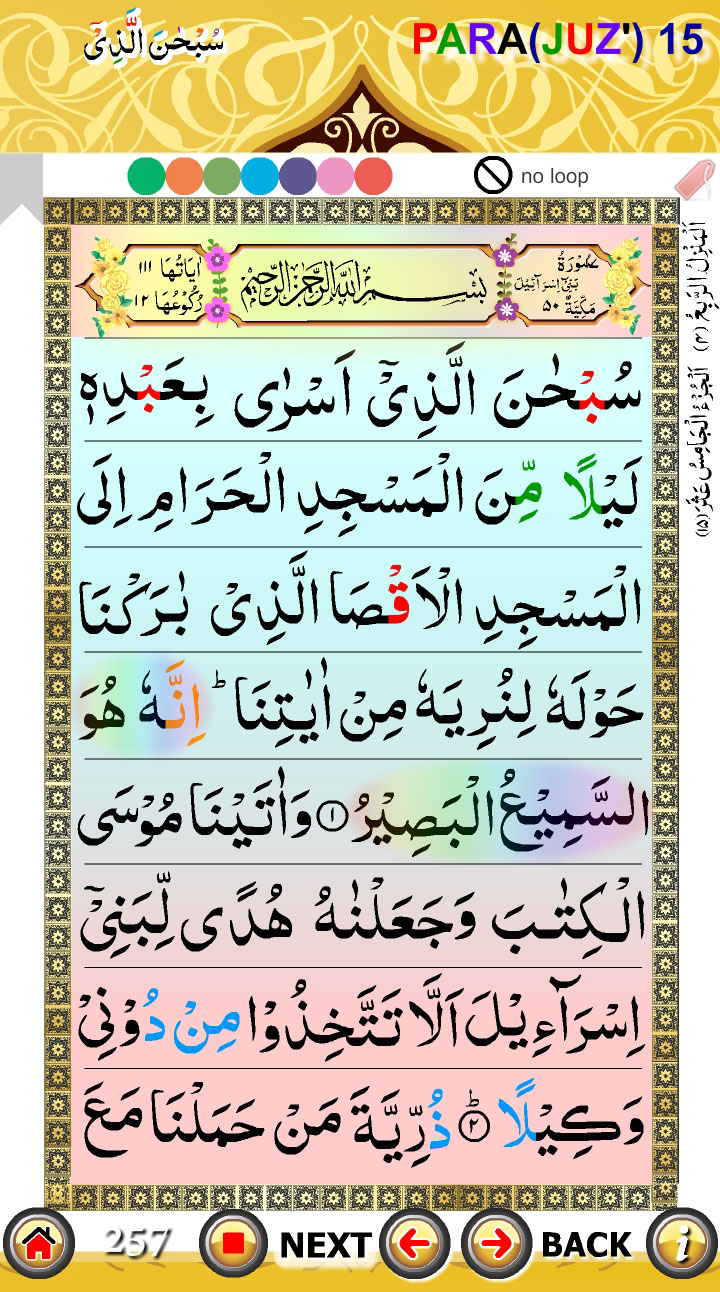 سُبْحٰنَ الَّذِیْۤ
PARA(JUZ') 15
no loop
سُوْرَةُ بَنِیْۤ اِسْرَآءِیْلَ مَكِّیَّةٌ ۵۰
بِسْمِ اللّٰهِ الرَّحْمٰنِ الرَّحِیْمِ
اٰیَاتُهَا ۱۱۱
رُكُوْعُهَا ۱۲
اَلْمَنْزِلُ الرَّابِعُ (۴)
اَلْجُزْءُ الْخَامِسُ عَشَرَ (۱۵)
سُبْحٰنَ الَّذِیْۤ اَسْرٰی بِعَبْدِهٖ
لَیْلًا مِّنَ الْمَسْجِدِ الْحَرَامِ اِلَی
الْمَسْجِدِ الْاَقْصَا الَّذِیْ بٰرَكْنَا
حَوْلَهٗ لِنُرِیَهٗ مِنْ اٰیٰتِنَا ؕ اِنَّهٗ هُوَ
السَّمِیْعُ الْبَصِیْرُ ۝۱ وَاٰتَیْنَا مُوْسَی
الْكِتٰبَ وَجَعَلْنٰهُ هُدًی لِّبَنِیْۤ
اِسْرَآءِیْلَ اَلَّا تَتَّخِذُوْا مِنْ دُوْنِیْ
وَكِیْلًا ؕ۝۲ ذُرِّیَّةَ مَنْ حَمَلْنَا مَعَ
257
NEXT
BACK
i